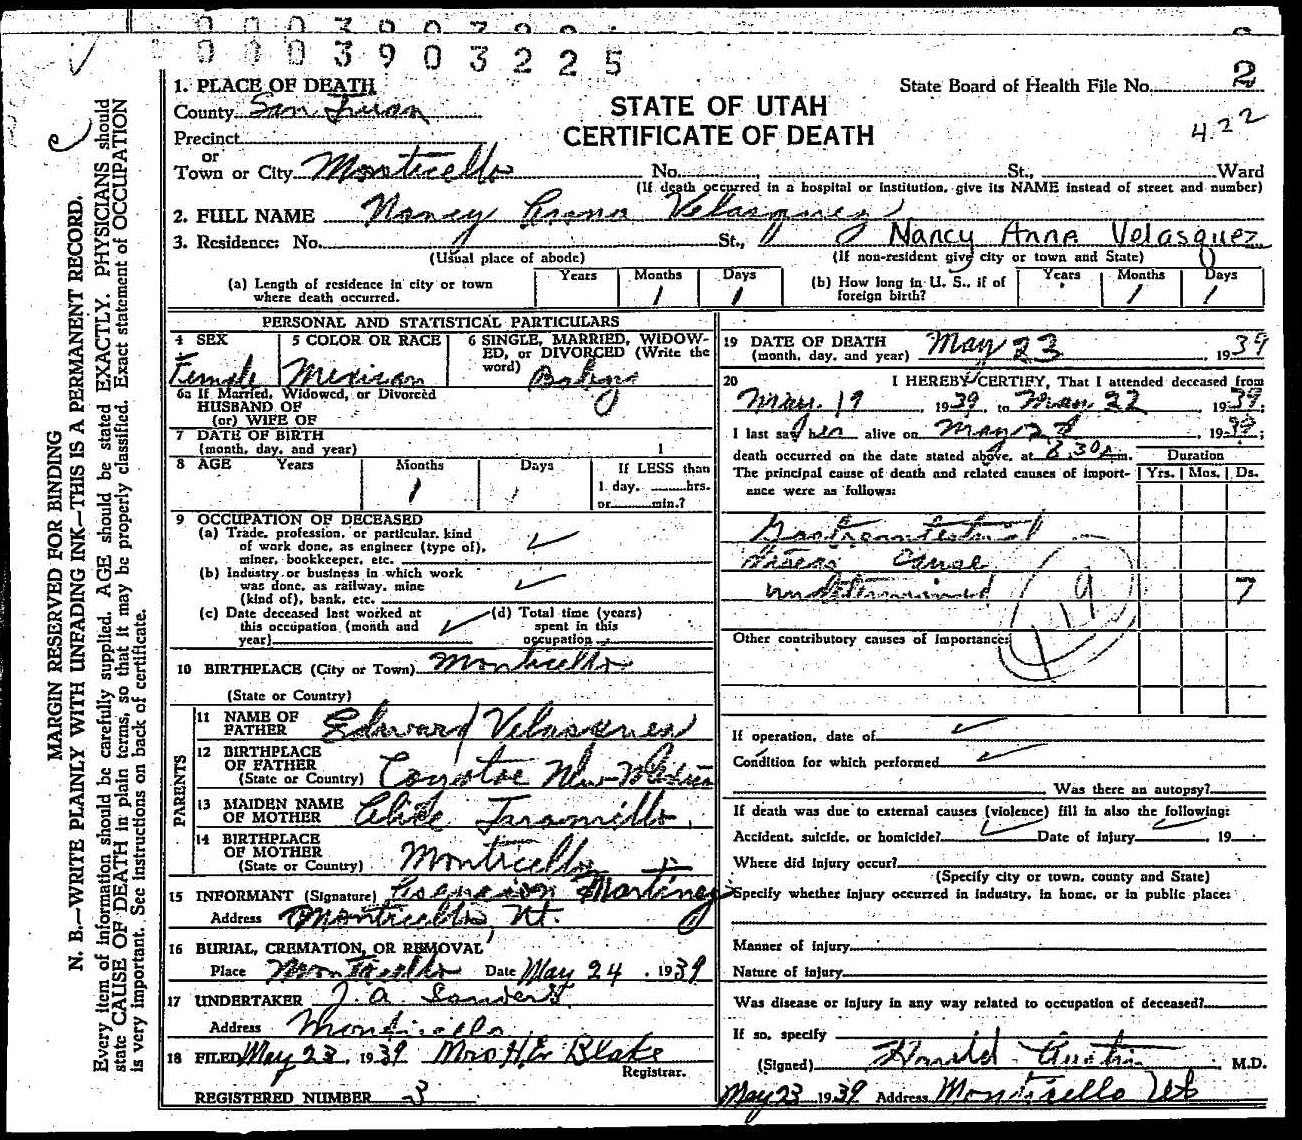 0003903225
1. PLACE OF DEATH
State Board of Health File No. 2
County San Juan
STATE OF UTAH
CERTIFICATE OF DEATH
422
Precinct
or
Town or City Monticello No. St., Ward
(If death occurred in a hospital or institution, give its NAME instead of street and number)
2. FULL NAME Nancy Anna Velasquez
3. Residence: No. St., Nancy Anna Velasquez
(Usual place of abode) (If non-resident give city or town and State)
(a) Length of residence in city or town where death occurred. Years Months 1 Days 1 (b) How long in U. S., if of foreign birth? Years Months 1 Days 1
PERSONAL AND STATISTICAL PARTICULARS
4 SEX 5 COLOR OR RACE 6 SINGLE, MARRIED, WIDOWED, or DIVORCED (Write the word)
Female Mexican
6a If Married, Widowed, or Divorced
HUSBAND OF
(or) WIFE OF
7 DATE OF BIRTH
(month, day, and year) 1
8 AGE Years Months Days If LESS than
1 1 1 day, hrs.
or min.?
9 OCCUPATION OF DECEASED
(a) Trade, profession, or particular, kind
of work done, as engineer (type of),
miner, bookkeeper, etc.
(b) Industry or business in which work
was done, as railway, mine
(kind of), bank, etc.
(c) Date deceased last worked at
this occupation (month and
year)
(d) Total time (years)
spent in this
occupation
10 BIRTHPLACE (City or Town) Monticello
(State or Country)
PARENTS
11 NAME OF FATHER Edward Velasquez
12 BIRTHPLACE OF FATHER
(State or Country) New Mexico
13 MAIDEN NAME OF MOTHER Alice Jaramillo
14 BIRTHPLACE OF MOTHER
(State or Country) Monticello
15 INFORMANT (Signature) Asencion Martinez
Address Monticello, Ut.
16 BURIAL, CREMATION, OR REMOVAL
Place Monticello Date May 24, 1939
17 UNDERTAKER J. A.
Address Monticello
18 FILED May 23, 1939 Mrs H. E. Blake
Registrar.
REGISTERED NUMBER 3
19 DATE OF DEATH
(month, day, and year) May 23 1939
20 I HEREBY CERTIFY, That I attended deceased from
May 19, 1939, to May 22 1939;
I last saw her alive on May 22, 1939;
death occurred on the date stated above, at 8.30 m. Duration
The principal cause of death and related causes of importance were as follows: Yrs. Mos. Ds.
Gastrointestinal
Cause
undetermined 7
119
Other contributory causes of importance:
If operation, date of
Condition for which performed
Was there an autopsy?
If death was due to external causes (violence) fill in also the following:
Accident, suicide, or homicide? Date of injury 19
Where did injury occur?
(Specify city or town, county and State)
Specify whether injury occurred in industry, in home, or in public place:
Manner of injury
Nature of injury
Was disease or injury in any way related to occupation of deceased?
If so, specify
(Signed) Harold Austin M.D.
May 23 1939 Address Monticello Ut
MARGIN RESERVED FOR BINDING
N. B.—WRITE PLAINLY WITH UNFADING INK—THIS IS A PERMANENT RECORD.
Every item of information should be carefully supplied. AGE should be stated EXACTLY. PHYSICIANS should
state CAUSE OF DEATH in plain terms, so that it may be properly classified. Exact statement of OCCUPATION
is very important. See instructions on back of certificate.